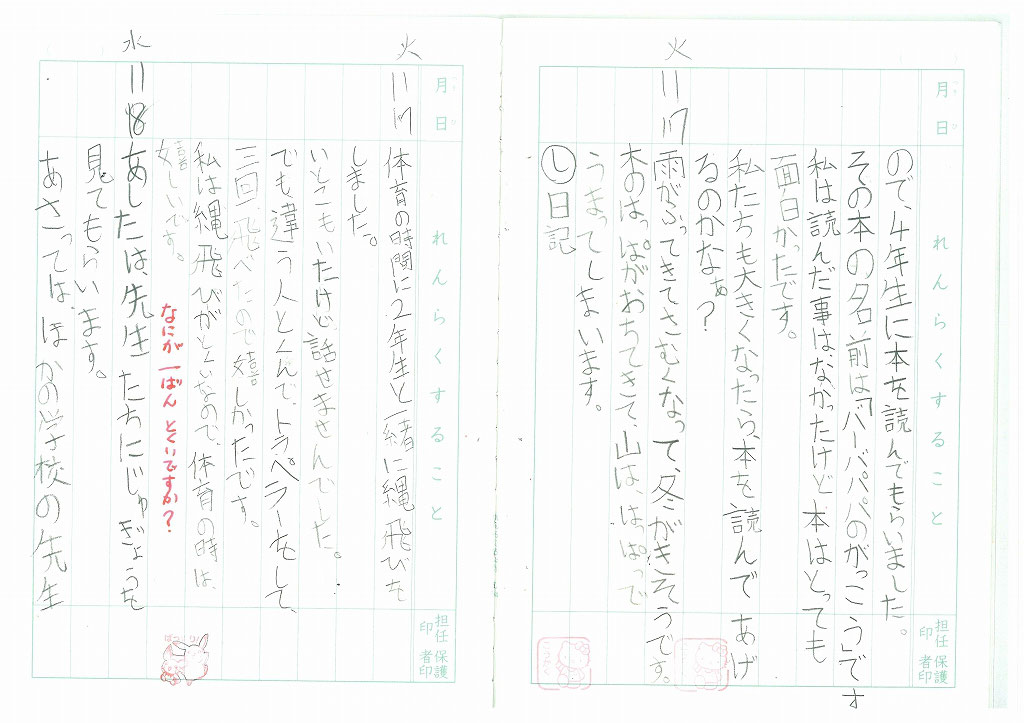 月日 れんらくすること 担任印 保護者印
ので、4年生に本を読んでもらいました。
その本の名前は「バーバパパのがっこう」です
私は読んだ事はなかったけど本はとっても
面白かったです。
私たちも大きくなったら、本を読んであげ
るのかなぁ?
火 11 17 雨がふってきてさむくなって、冬がきそうです。
木のはっぱがおちてきて、山は、はぱっで
うまってしまいます。
し 日記
月日 れんらくすること 担任印 保護者印
火 11 17 体育の時間に2年生と一緒に縄飛びを
しました。
いとこもいたけど話せませんでした。
でも違う人とくんで、トラペラーをして、
三回、飛べたので嬉しかったです。
私は縄飛びがとくいなので、体育の時は、
嬉しいです。
なにが一ばんとくいですか?
水 11 18 あしたは、先生たちにじゅぎょうを
見てもらいます。
あさっては、ほかの学校の先生